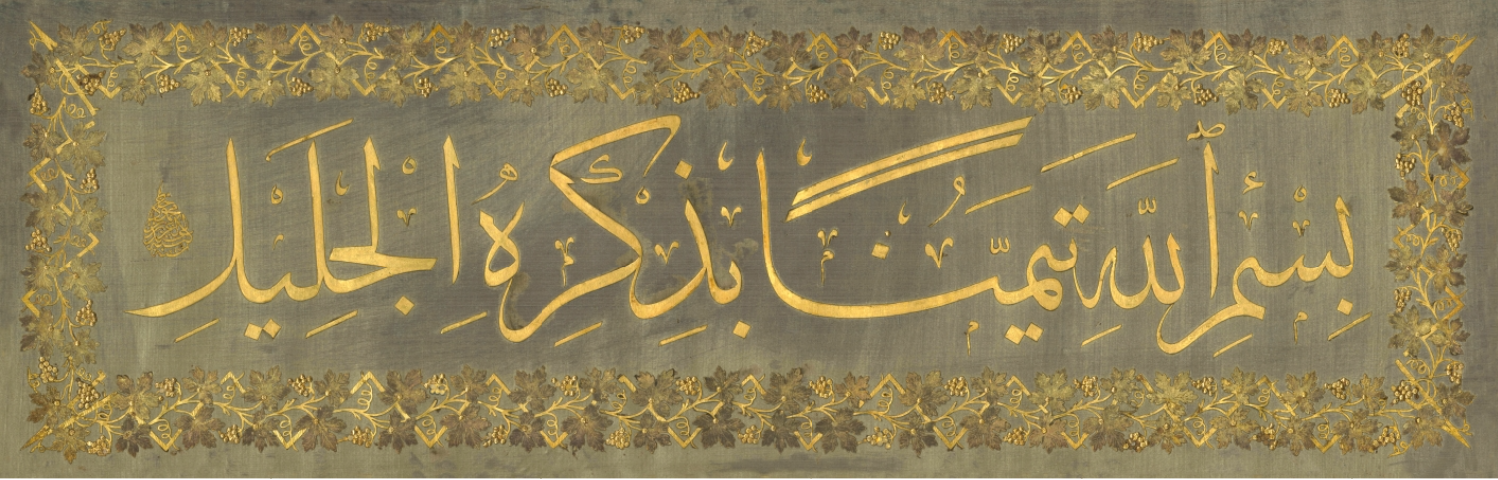 بِسْمِ ٱللَّهِ تَيَمُّنًا بِذِكْرِهِ الْجَلِيلِ